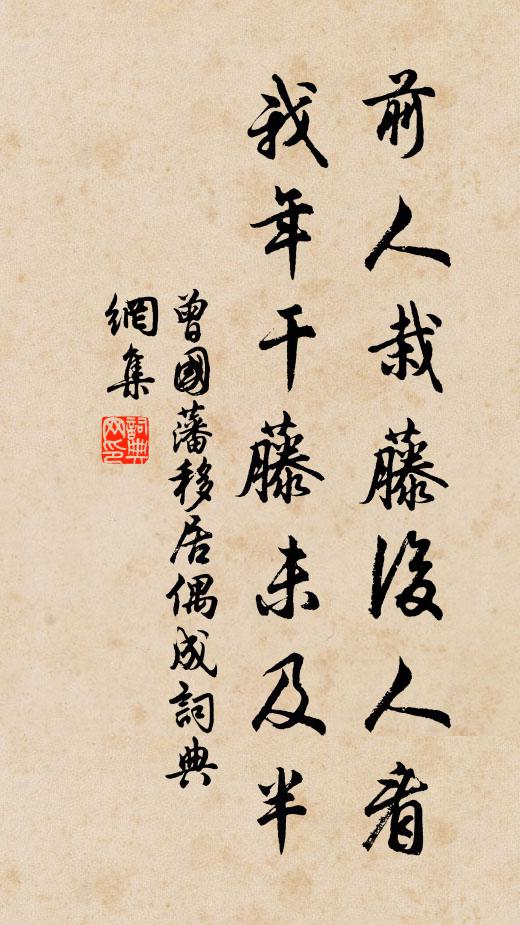 前人栽藤後人看
我年干藤未及半
曾國藩移居偶成詞典
網集
詞典
网印